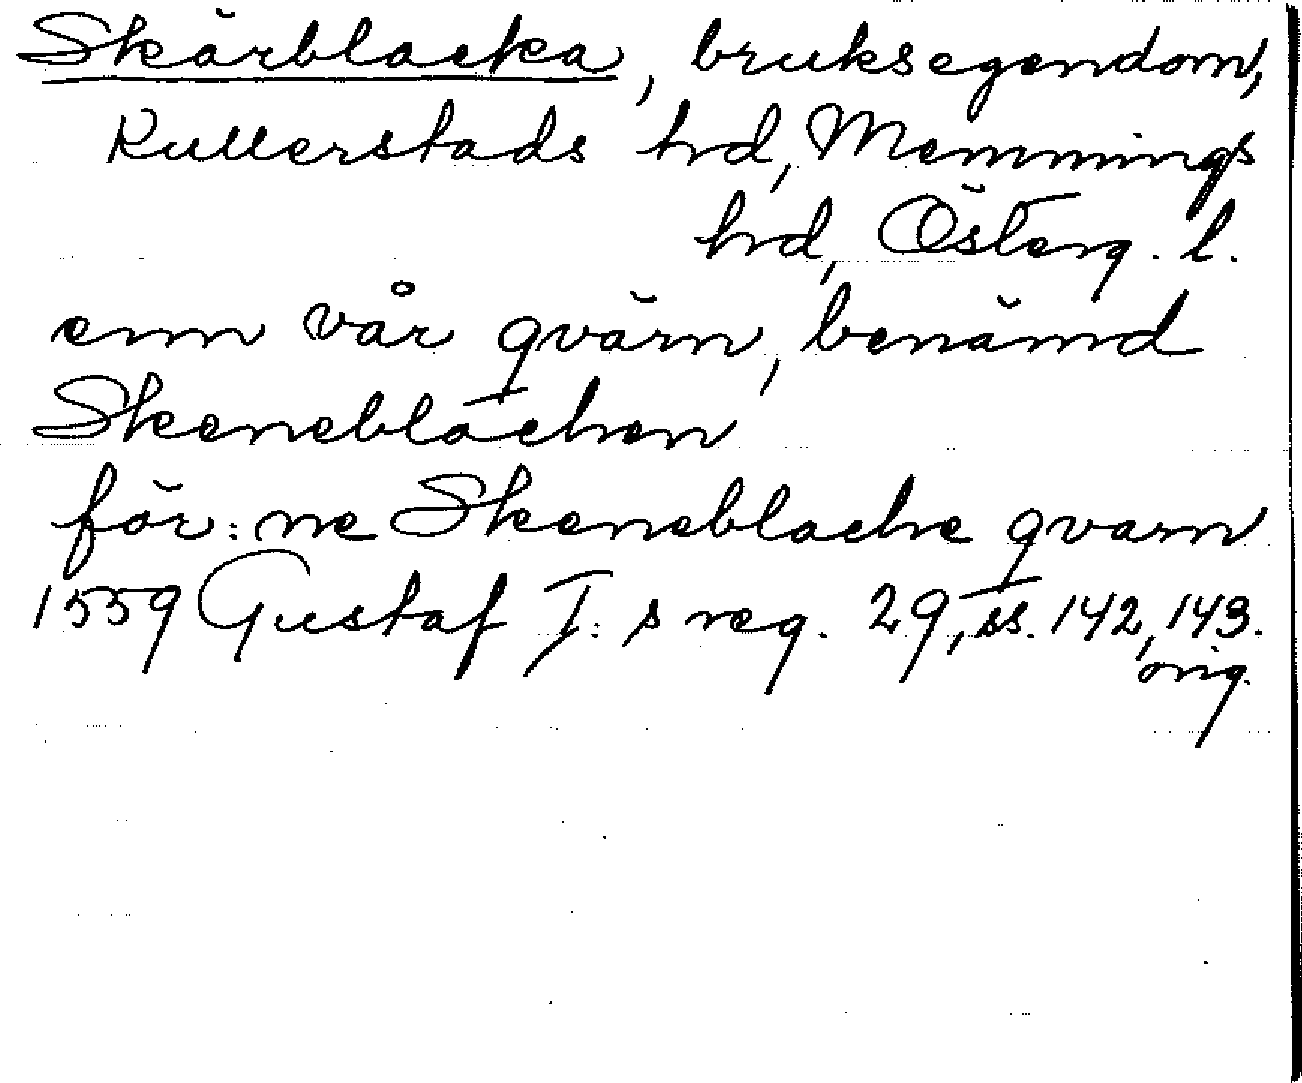 Skärblacka, bruksegendom,
Kullerstads hd, Memmings
hd, Österg. l.
enn vår qvärn, benämd
Skenebläcken
för: ne Skeneblacke qvarn
1559 Gustaf I: s reg. 29, ss. 142, 143.
orig.